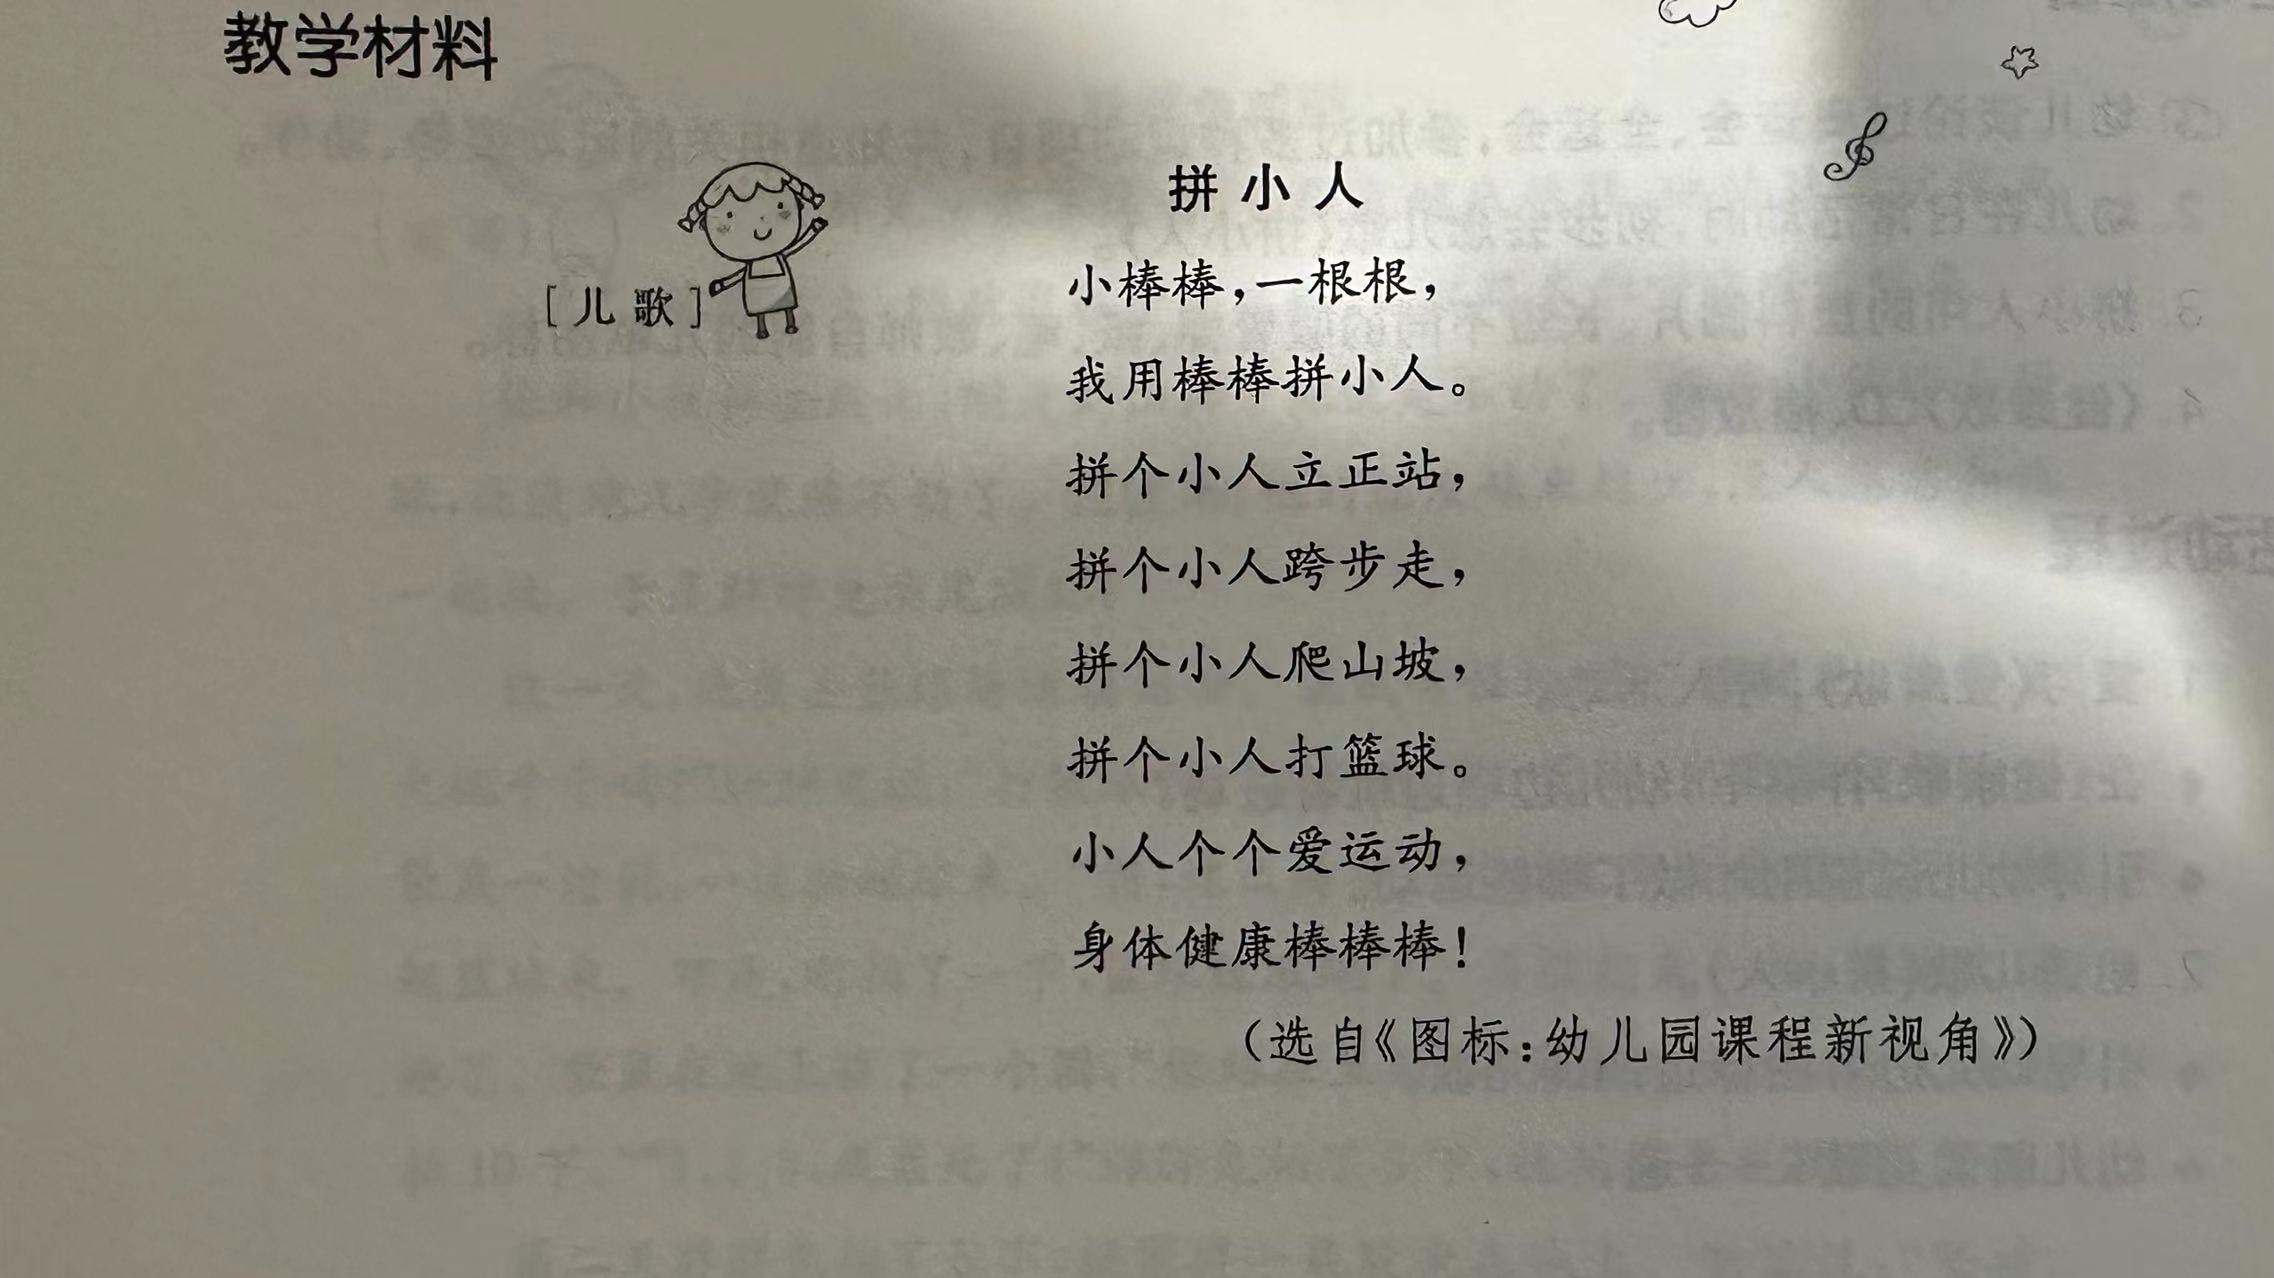 教学材料
拼小人
[儿歌]
小棒棒,一根根,
我用棒棒拼小人。
拼个小人立正站,
拼个小人跨步走,
拼个小人爬山坡,
拼个小人打篮球。
小人个个爱运动,
身体健康棒棒棒!
(选自《图标:幼儿园课程新视角》)